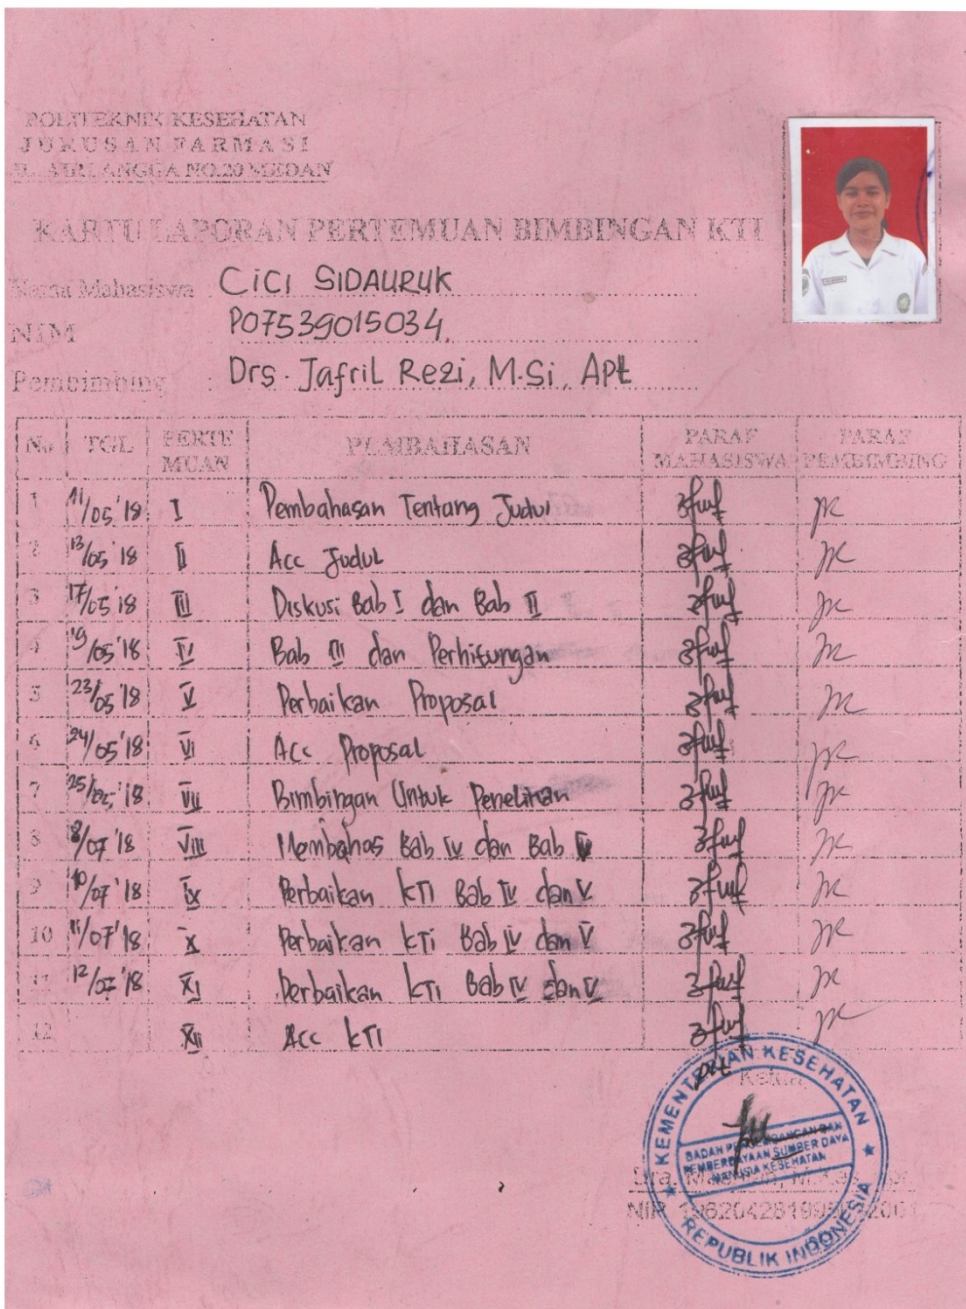 POLITEKNIK KESEHATAN
JURUSAN FARMASI
JL. AIRLANGGA NO.20 MEDAN
KARTU LAPORAN PERTEMUAN BIMBINGAN KTI
Nama Mahasiswa : CiCi SIDAURUK
NIM P07539015034
Pembimbing : Drs. Jafril Rezi, M.Si, Apt
No TGL PERTE MUAN PEMBAHASAN PARAF MAHASISWA PARAF PEMBIMBING
1 11/05'18 I Pembahasan Tentang Judul
2 13/05'18 II Acc Judul
3 17/05'18 III Diskusi Bab I dan Bab II
4 19/05'18 IV Bab III dan Perhitungan
5 23/05'18 V Perbaikan Proposal
6 24/05'18 VI Acc Proposal
7 25/05'18 VII Bimbingan Untuk Penelitian
8 8/07'18 VIII Membahas Bab IV dan Bab V
9 10/07'18 IX Perbaikan KTI Bab IV dan V
10 11/07'18 X Perbaikan KTi Bab IV dan V
11 12/07'18 XI Perbaikan KTi Bab IV dan V
12 XII Acc KTI
Ketua
KEMENTERIAN KESEHATAN
BADAN PENGEMBANGAN DAN
PEMBERDAYAAN SUMBER DAYA
MANUSIA KESEHATAN
REPUBLIK INDONESIA
Dra.
NIP.